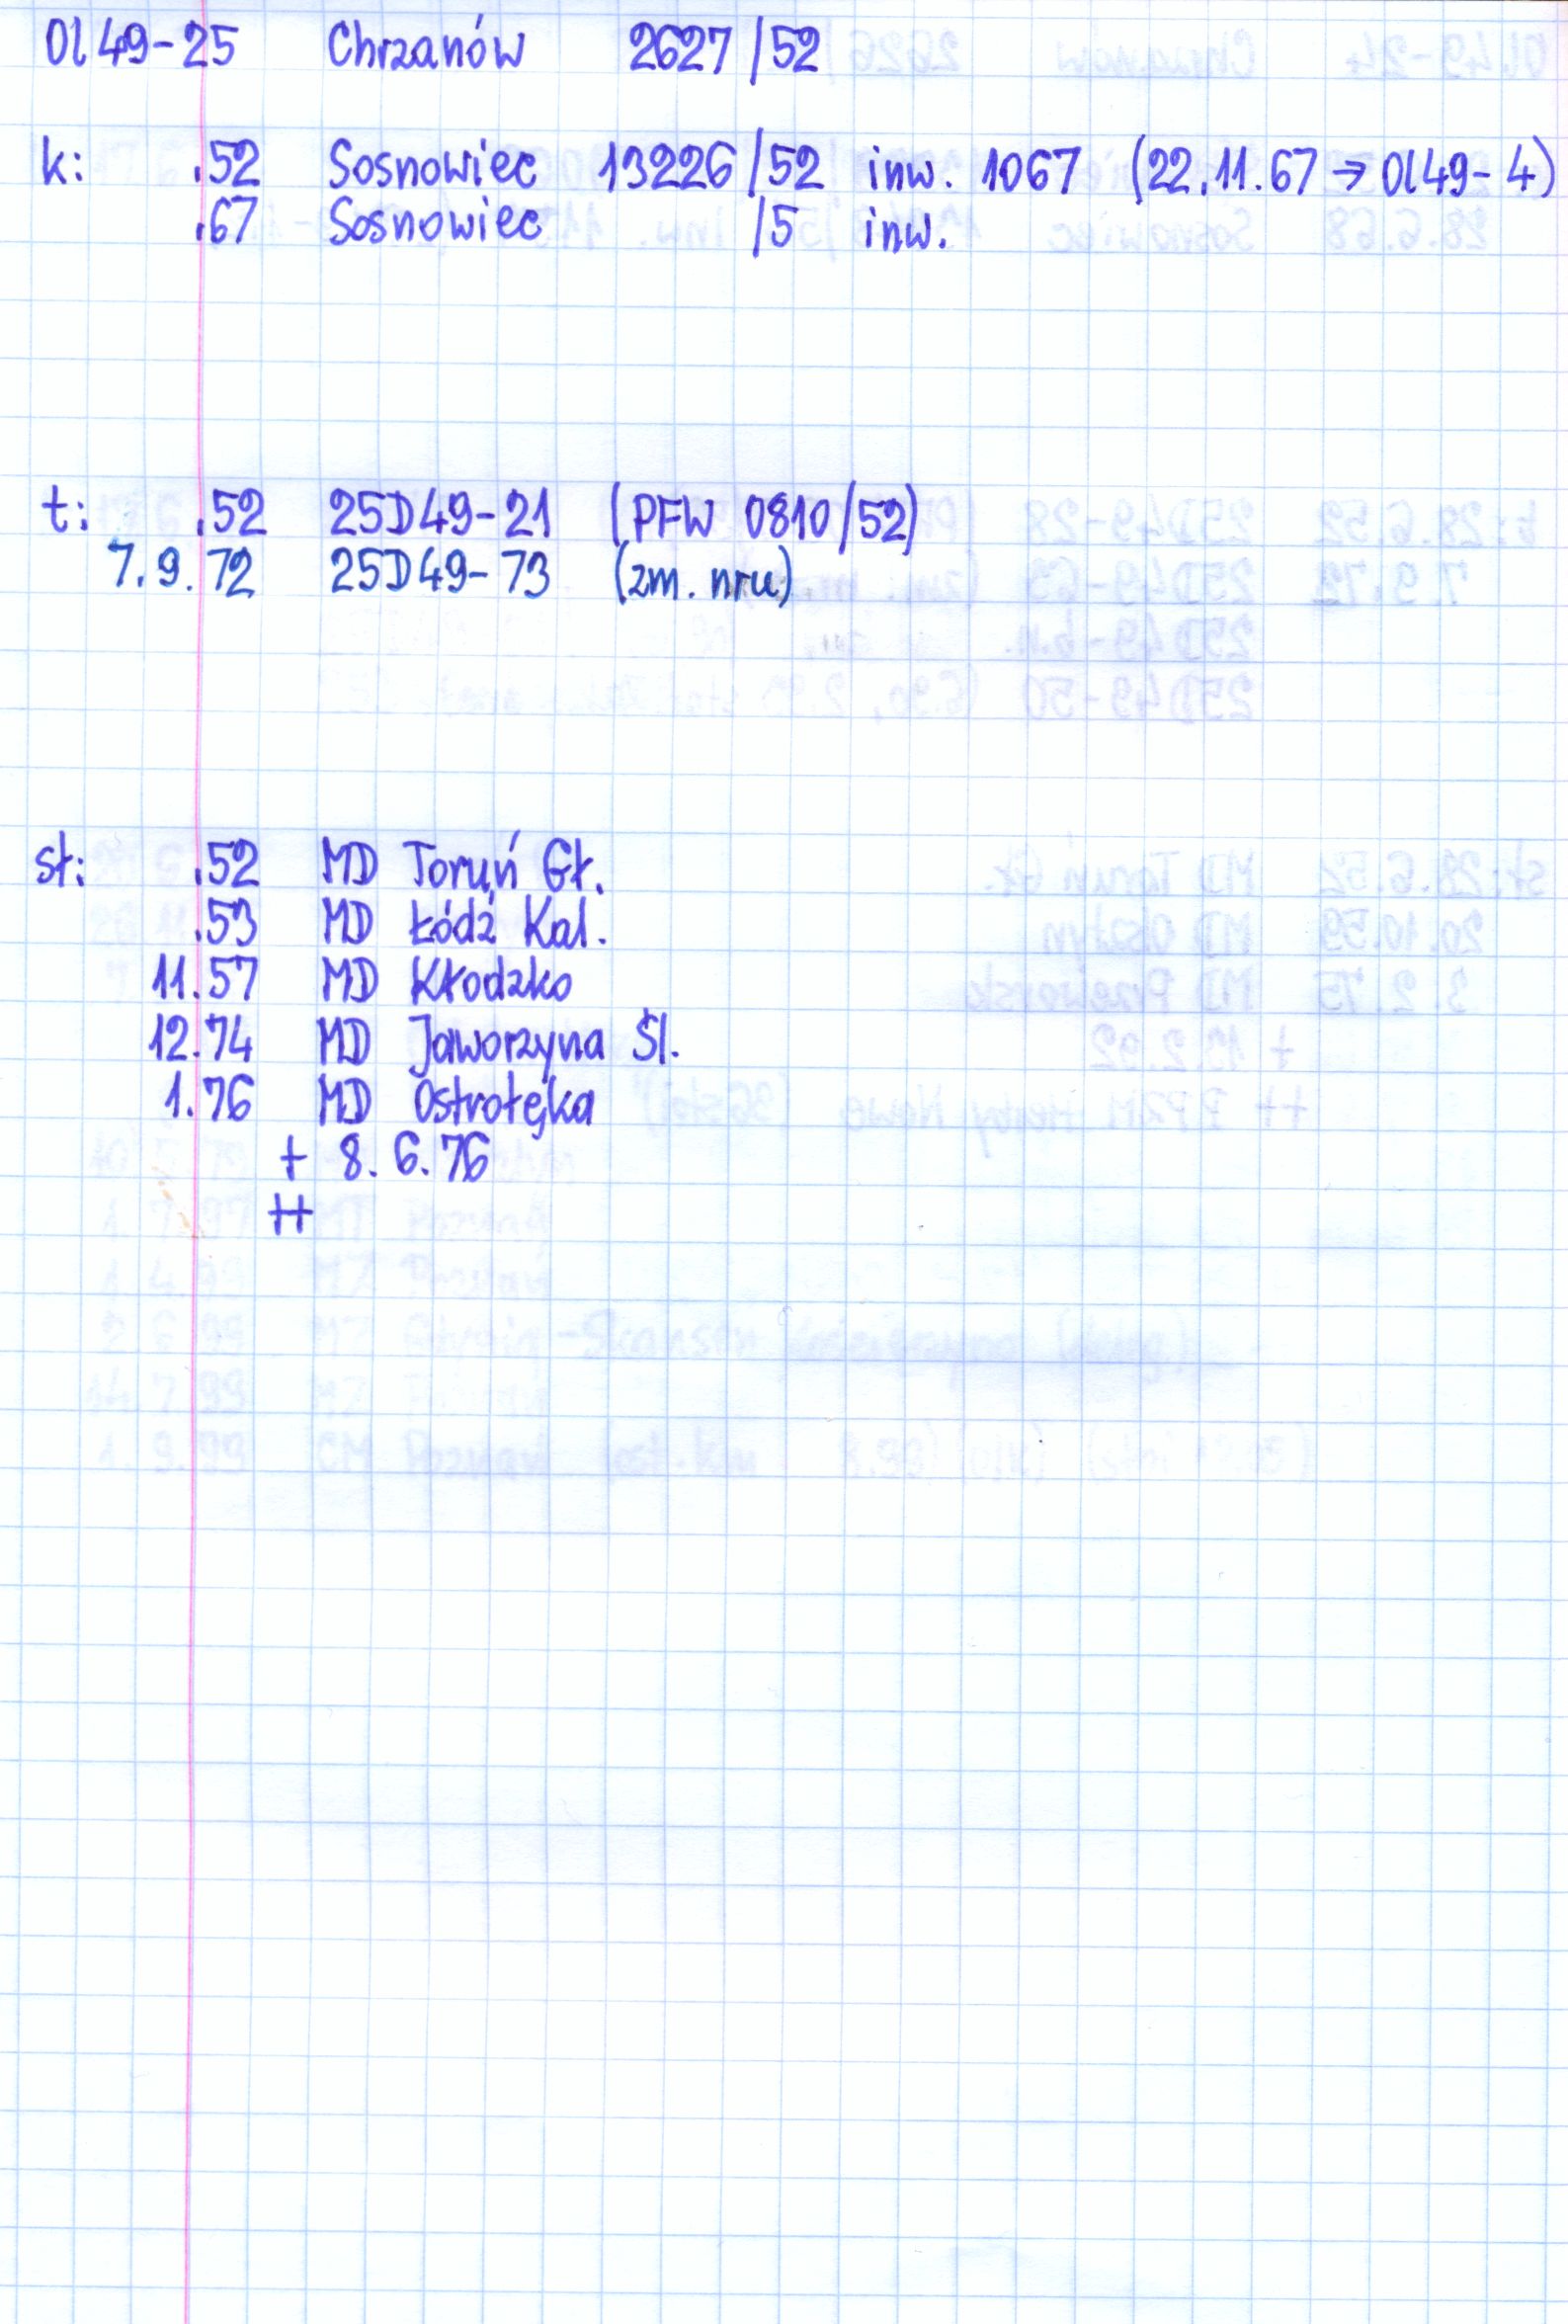 Ol49-25 Chrzanów 2627/52
k: .52 Sosnowiec 13226/52 inw. 1067 (22.11.67 → Ol49-4)
.67 Sosnowiec /5 inw.
t: .52 25D49-21 (PFW 0810/52)
7.9.72 25D49-73 (zm. nru)
st: .52 MD Toruń Gł.
.53 MD Łódź Kal.
11.57 MD Kłodzko
12.74 MD Jaworzyna Śl.
1.76 MD Ostrołęka
+ 8.6.76
++